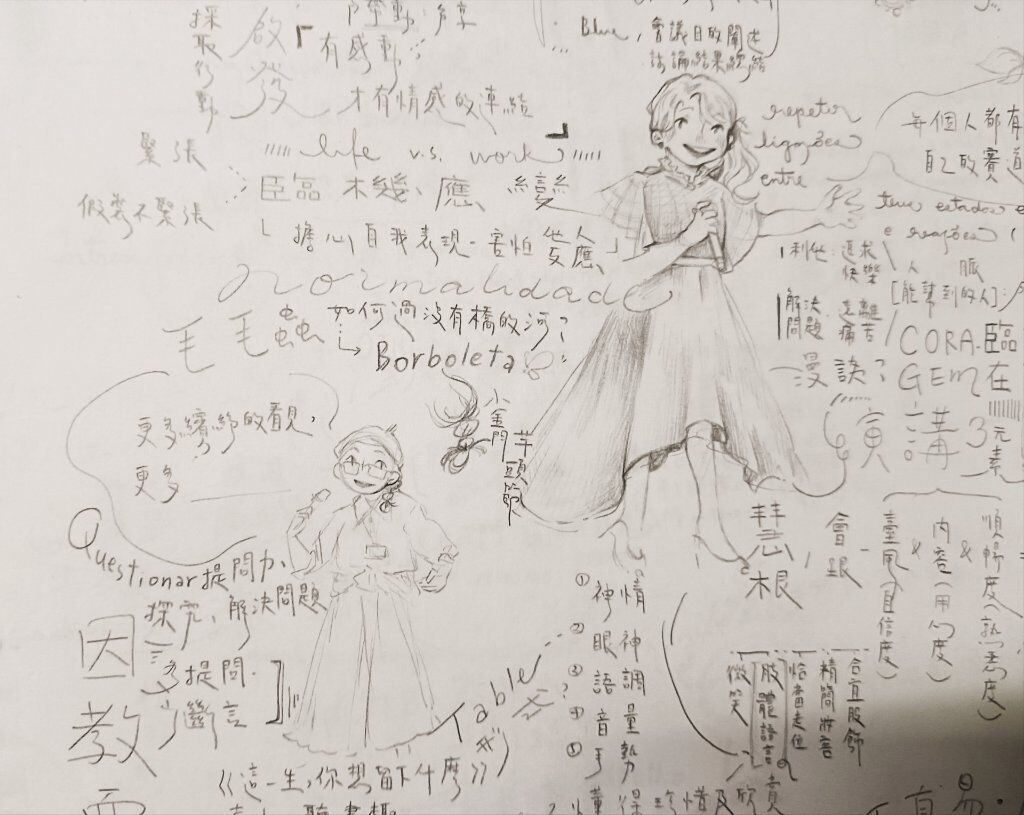 採取行動
啟發
「有感動
才有情感的連結
Blue,會議目的闡述
討論結果總結
緊張
假裝不緊張
life v.s. work
臨機、應變
「擔心自我表現-害怕
normalidade
毛毛蟲
如何過沒有橋的河?
Borboleta
小金門芋頭節
repetir
ligações
entre
每個人都有
自己的賽道
teus estados e
e reações
利他:追求快樂
解決問題:遠離痛苦
人脈
[能幫到的人]
漫談?
CORAGEM
臨在
演講3元素
更多繽紛的看見,
更多______
Questionar提問力、
探究、解決問題
多提問.
少斷言
因
教
Table
《這一生,你想留下什麼》
慧根,會跟
臺風(自信度)
&
內容(用心度)
&
順暢度(熟悉度)
①神情
②眼神
③語調
④音量
⑤手勢
微笑
肢體語言
恰當走位
精簡妝容
合宜服飾
懂得珍惜及欣賞